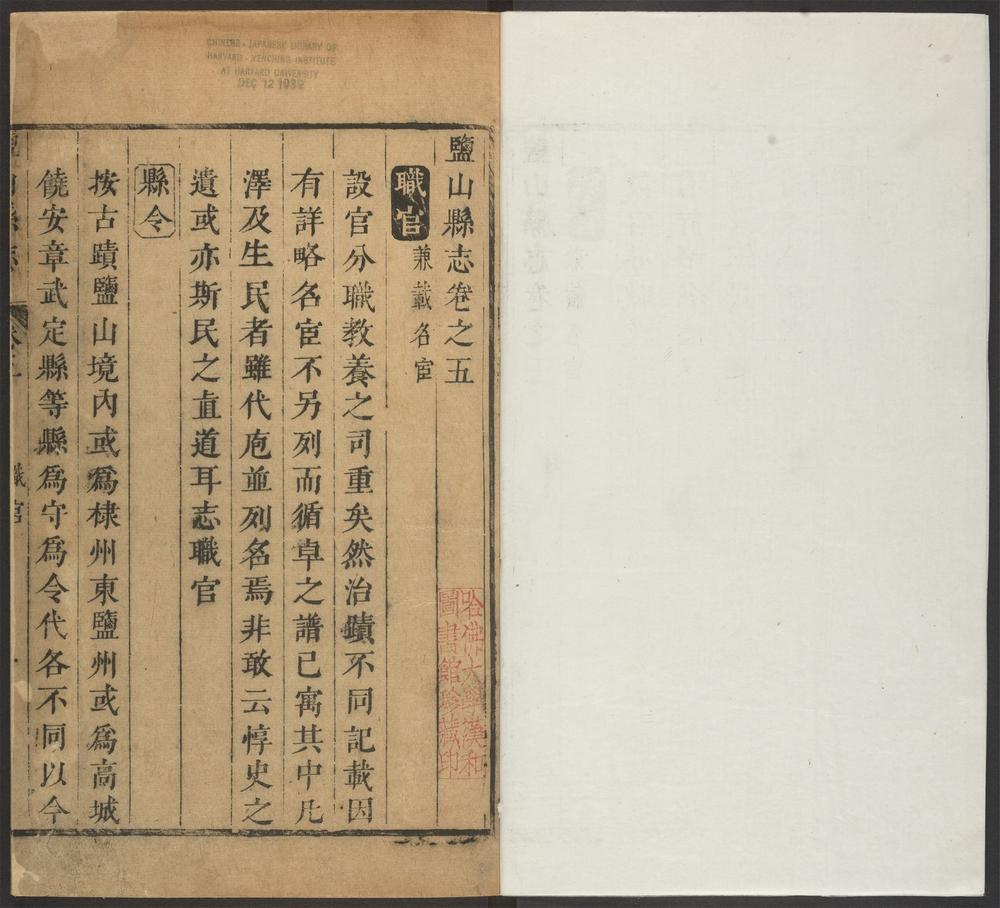 鹽山縣志卷之五
職官 兼載名宦
設官分職教養之司重矣然治蹟不同記載因
有詳略名宦不另列而循卓之譜已寓其中凡
澤及生民者雖代庖並列名焉非敢云惇史之
遺或亦斯民之直道耳志職官
縣令
按古蹟鹽山境內或爲棣州東鹽州或爲高城
饒安章武定縣等縣爲守爲令代各不同以今
職官
哈佛大學漢和
圖書館珍藏印
CHINESE - JAPANESE LIBRARY OF
HARVARD - YENCHING INSTITUTE
AT HARVARD UNIVERSITY
DEC 12 1939